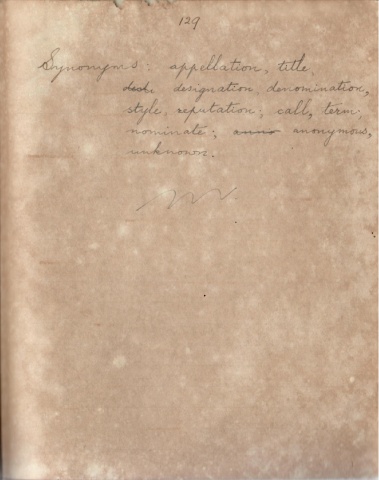 129
Synonyms: appellation, title,
designation, denomination,
style, reputation; call, term,
nominate; anonymous,
unknown.